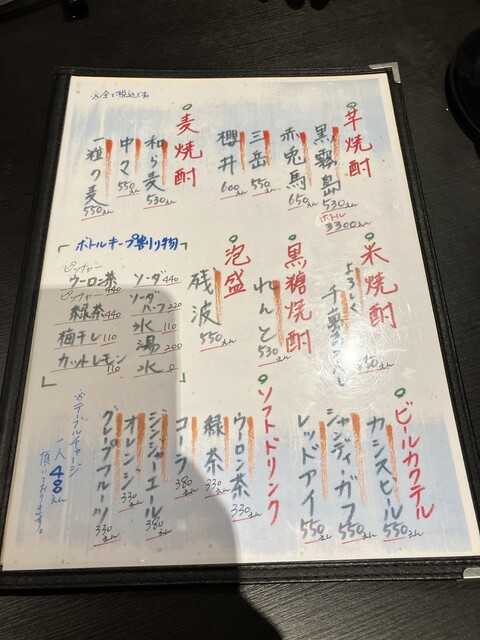 芋焼酎
黒霧島 530えん
ボトル 3300えん
赤兎馬 650えん
三岳 550えん
櫻井 600えん
麦焼酎
和ら麦 530えん
中々 550えん
一粒の麦 550えん
米焼酎
よろしく
黒糖焼酎
れんと 530えん
泡盛
残波 550えん
ボトルキープ割り物
ソーダ 440
ソーダハーフ 220
氷 110
湯 200
水 0
ピッチャーウーロン茶 440
ピッチャー緑茶 440
梅干し 110
カットレモン 110
ビールカクテル
カシスビール 550えん
シャンディーガフ 550えん
レッドアイ 550えん
ソフトドリンク
ウーロン茶 330えん
緑茶 330えん
コーラ 380えん
ジンジャーエール 380えん
オレンジ 330えん
グレープフルーツ 330えん
※テーブルチャージ
一人48えん
頂いております。